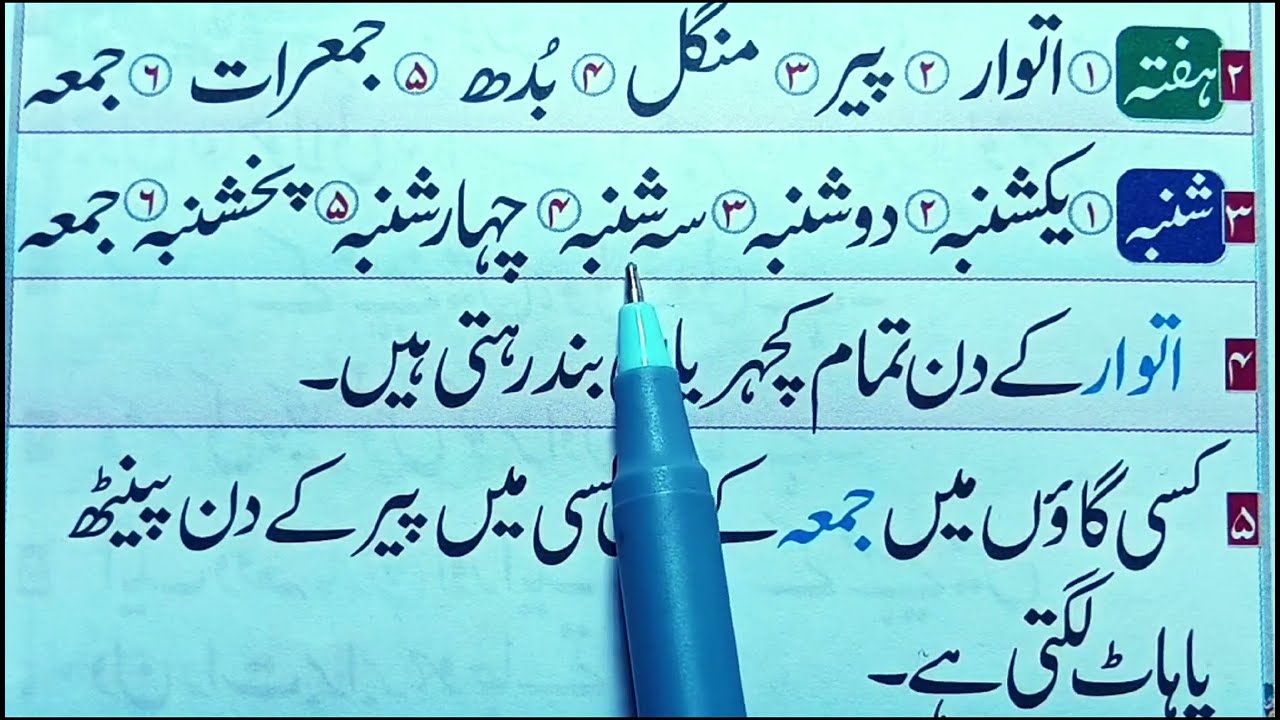 ۲ ہفتہ ۱ اتوار ۲ پیر ۳ منگل ۴ بُدھ ۵ جمعرات ۶ جمعہ
۳ شنبہ ۱ یکشنبہ ۲ دوشنبہ ۳ سہ شنبہ ۴ چہارشنبہ ۵ پنجشنبہ ۶ جمعہ
۴ اتوار کے دن تمام کچہریاں بند رہتی ہیں۔
۵ کسی گاؤں میں جمعہ کے کسی میں پیر کے دن پینٹھ
یا ہاٹ لگتی ہے۔